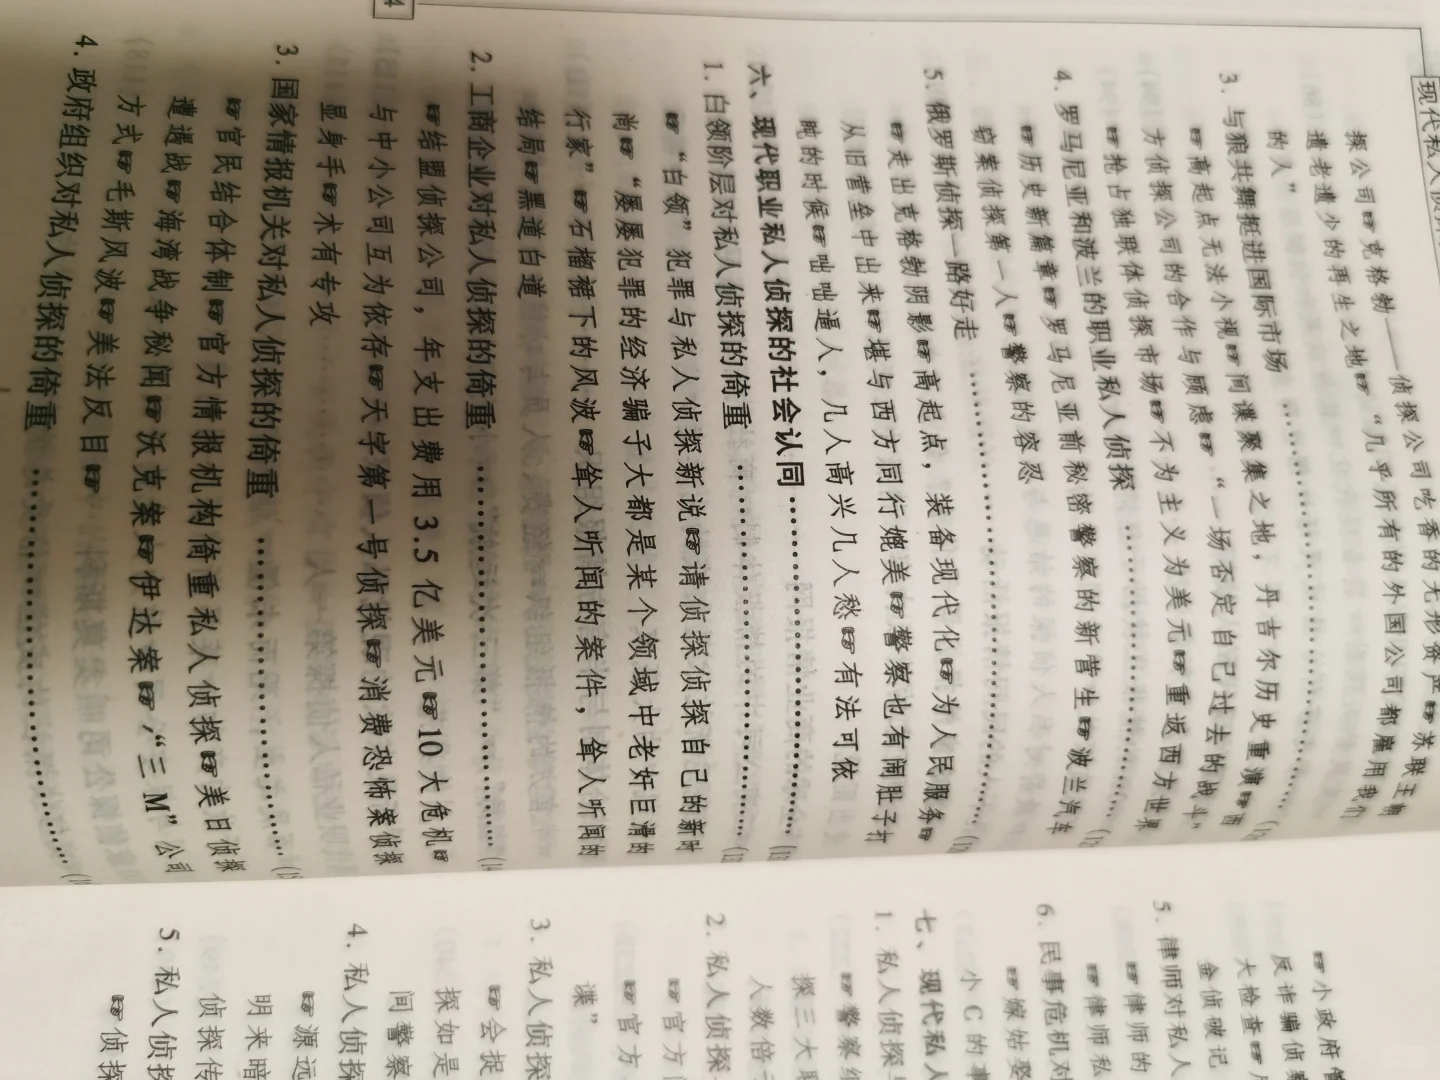 现代私人侦
探公司☞克格勃——侦探公司吃香的无形资产☞苏联王朝
遗老遗少的再生之地☞“几乎所有的外国公司都雇用我们
的人”
3. 与狼共舞挺进国际市场
☞高起点无法小视☞间谍聚集之地，丹吉尔历史重演☞西
方侦探公司的合作与顾虑☞“一场否定自己过去的战斗”
☞抢占独联体侦探市场☞不为主义为美元☞重返西方世界
4. 罗马尼亚和波兰的职业私人侦探
☞历史新篇章☞罗马尼亚前秘密警察的新营生☞波兰汽车
窃案侦探第一人☞警察的容忍
5. 俄罗斯侦探一路好走
☞走出克格勃阴影☞高起点，装备现代化☞为人民服务☞
从旧营垒中出来☞堪与西方同行媲美☞警察也有闹肚子打
盹的时候☞咄咄逼人，几人高兴几人愁☞有法可依
六、现代职业私人侦探的社会认同
1. 白领阶层对私人侦探的倚重
☞“白领”犯罪与私人侦探新说☞请侦探侦探自己的新时
尚☞“屡屡犯罪的经济骗子大都是某个领域中老奸巨滑的
行家”☞石榴裙下的风波☞耸人听闻的案件，耸人听闻的
结局☞黑道白道
2. 工商企业对私人侦探的倚重
☞结盟侦探公司，年支出费用3.5亿美元☞10大危机☞
与中小公司互为依存☞天字第一号侦探☞消费恐怖案侦探
显身手☞术有专攻
3. 国家情报机关对私人侦探的倚重
☞官民结合体制☞官方情报机构倚重私人侦探☞美日侦探
遭遇战☞海湾战争秘闻☞沃克案☞伊达案☞“三M”公司
方式☞毛斯风波☞美法反目☞
4. 政府组织对私人侦探的倚重
☞小政府
反诈骗侦
大检查☞
金侦破记
5. 律师对私人
☞律师的
☞律师私
6. 民事危机对
☞嫁姑娶
小C的事
七、现代私人
1. 私人侦探
☞警察组
探三大
人数倍
2. 私人侦探
☞官方
☞官方
谍”
3. 私人侦探
☞会捉
探如是
间警察
4. 私人侦探
☞源远
明来暗
侦探传
5. 私人侦探
☞侦探